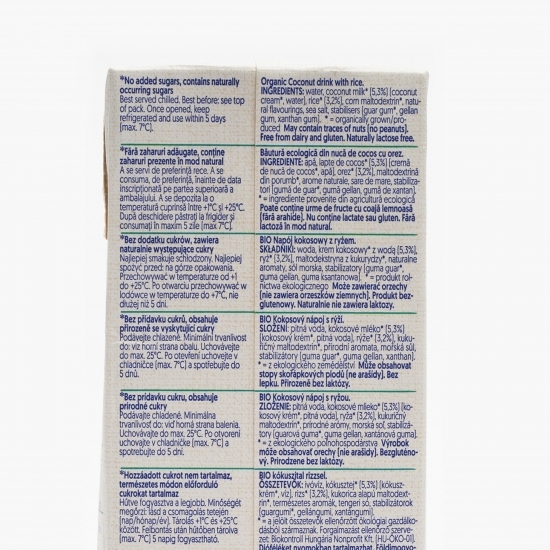 *No added sugars, contains naturally
occurring sugars
Best served chilled. Best before: see top
of pack. Once opened, keep
refrigerated and use within 5 days
(max. 7°C).
Organic Coconut drink with rice.
INGREDIENTS: water, coconut milk* (5,3%) (coconut
cream*, water), rice* (3,2%), corn maltodextrin*, natu-
ral flavourings, sea salt, stabilisers (guar gum*, gellan
gum, xanthan gum). * = organically grown/pro-
duced May contain traces of nuts (no peanuts).
Free from dairy and gluten. Naturally lactose free.
*Fără zaharuri adăugate, conține
zaharuri prezente în mod natural
A se servi de preferință rece. A se
consuma, de preferință, înainte de data
inscripționată pe partea superioară a
ambalajului. A se depozita la o
temperatură cuprinsă între +1°C și +25°C.
După deschidere păstrați la frigider și
consumați în maxim 5 zile (max. 7°C).
Băutură ecologică din nucă de cocos cu orez.
INGREDIENTE: apă, lapte de cocos* (5,3%) (cremă
de nucă de cocos*, apă), orez* (3,2%), maltodextrină
din porumb*, arome naturale, sare de mare, stabiliza-
tori (gumă de guar*, gumă gellan, gumă de xantan).
* = ingrediente provenite din agricultură ecologică
Poate conține urme de fructe cu coajă lemnoasă
(fără arahide). Nu conține lactate sau gluten. Fără
lactoză în mod natural.
*Bez dodatku cukrów, zawiera
naturalnie występujące cukry
Najlepiej smakuje schłodzony. Najlepiej
spożyć przed: na górze opakowania.
Przechowywać w temperaturze od +1
do +25°C. Po otwarciu przechowywać w
lodówce w temperaturze do +7°C, nie
dłużej niż 5 dni.
BIO Napój kokosowy z ryżem.
SKŁADNIKI: woda, krem kokosowy* z wodą (5,3%),
ryż* (3,2%), maltodekstryna z kukurydzy*, naturalne
aromaty, sól morska, stabilizatory (guma guar*,
guma gellan, guma ksantanowa). * = produkt rol-
nictwa ekologicznego Może zawierać orzechy
(nie zawiera orzeszków ziemnych). Produkt bez-
glutenowy. Naturalnie nie zawiera laktozy.
*Bez přídavku cukrů, obsahuje
přirozeně se vyskytující cukry
Podávejte chlazené. Minimální trvanlivost
do: viz horní strana obalu. Uchovávejte
do max. 25°C. Po otevření uchovejte v
chladničce (max. 7°C) a spotřebujte do
5 dnů.
BIO Kokosový nápoj s rýží.
SLOŽENÍ: pitná voda, kokosové mléko* (5,3%)
(kokosový krém*, pitná voda), rýže* (3,2%), kuku-
řičný maltodextrin*, přírodní aromata, mořská sůl,
stabilizátory (guma guar*, guma gellan, xanthan).
* = z ekologického zemědělství Může obsahovat
stopy skořápkových plodů (ne arašídy). Bez
lepku. Přirozeně bez laktózy.
*Bez prídavku cukru, obsahuje
prírodné cukry
Podávajte chladené. Minimálna
trvanlivosť do: viď horná strana balenia.
Uchovávajte do max. 25°C. Po otvorení
uchovajte v chladničke (max. 7°C) a
spotrebujte do 5 dní.
BIO Kokosový nápoj s ryžou.
ZLOŽENIE: pitná voda, kokosové mlieko* (5,3%) (ko-
kosový krém*, pitná voda), ryža* (3,2%), kukuričný
maltodextrín*, prírodné arómy, morská soľ, stabilizá-
tory (guarová guma*, guma gellan, xantánová guma).
* = z ekologického poľnohospodárstva Výrobok
môže obsahovať orechy (nie arašidy). Bezgluténo-
vý. Prirodzene bez laktózy.
*Hozzáadott cukrot nem tartalmaz,
természetes módon előforduló
cukrokat tartalmaz
Hűtve fogyasztva a legjobb. Minőségét
megőrzi: lásd a csomagolás tetején
(nap/hónap/év). Tárolás +1°C és +25°C
között. Felbontás után hűtőben tárolva
(max. 7°C) 5 napig fogyasztható.
BIO kókuszital rizzsel.
ÖSSZETEVŐK: ivóvíz, kókusztej* (5,3%) (kókusz-
krém*, víz), rizs* (3,2%), kukorica alapú maltodext-
rin*, természetes aromák, tengeri só, stabilizátorok
(guargumi*, gellángumi, xantángumi).
* = a jelölt összetevők ellenőrzött ökológiai gazdálko-
dásból származnak. Forgalmazást ellenőrző szerve-
zet: Biokontroll Hungária Nonprofit Kft. (HU-ÖKO-01).
Dióféléket nyomokban tartalmazhat. Földimogyo-